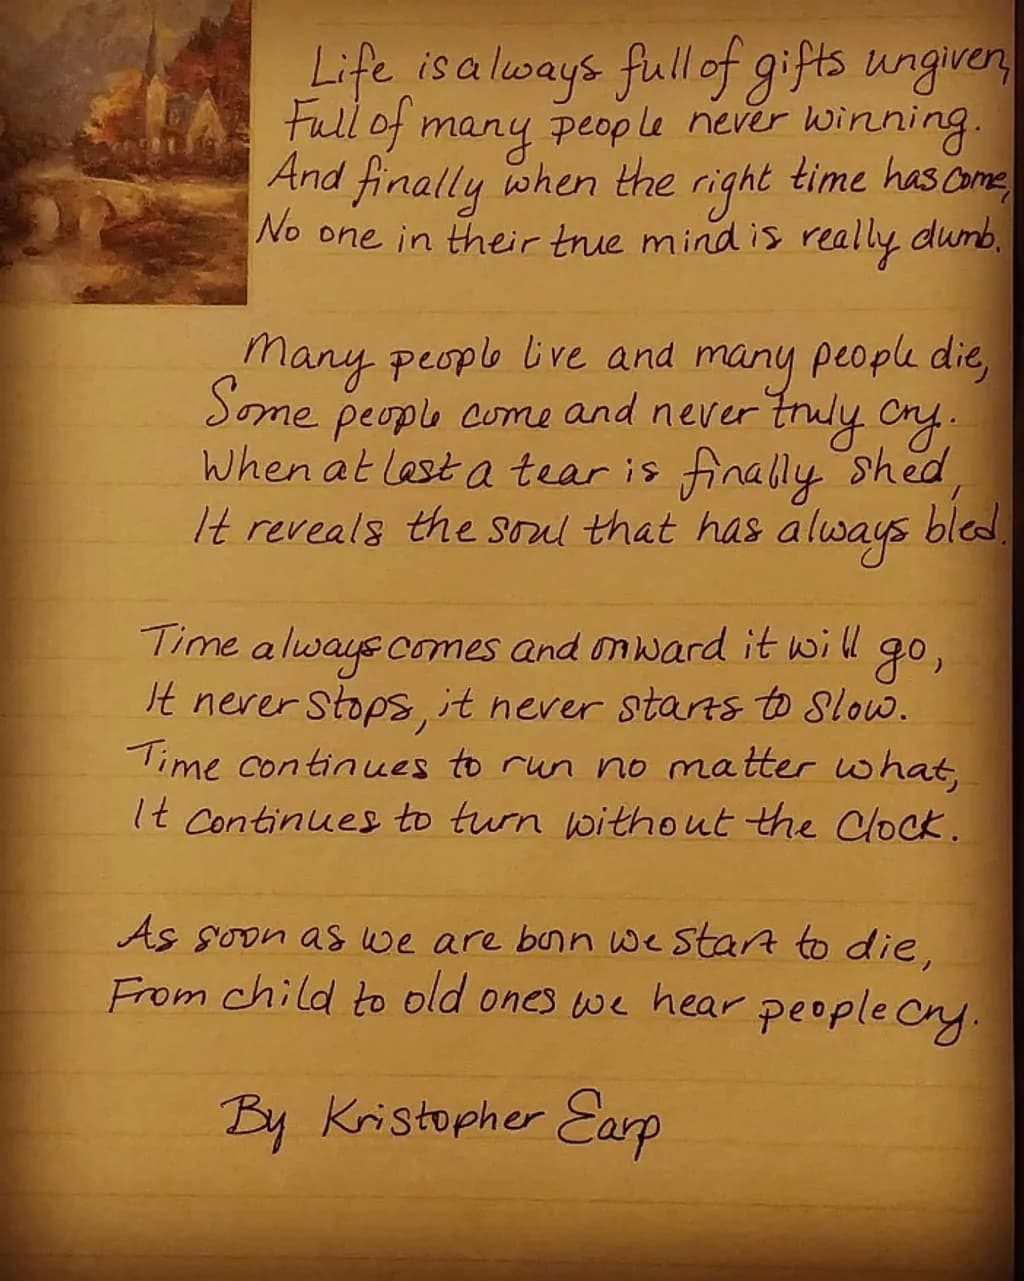 Life is always full of gifts ungiven,
Full of many people never winning.
And finally when the right time has come,
No one in their true mind is really dumb.
Many people live and many people die,
Some people come and never truly cry.
When at last a tear is finally shed,
It reveals the soul that has always bled.
Time always comes and onward it will go,
It never stops, it never starts to slow.
Time continues to run no matter what,
It continues to turn without the clock.
As soon as we are born we start to die,
From child to old ones we hear people cry.
By Kristopher Earp